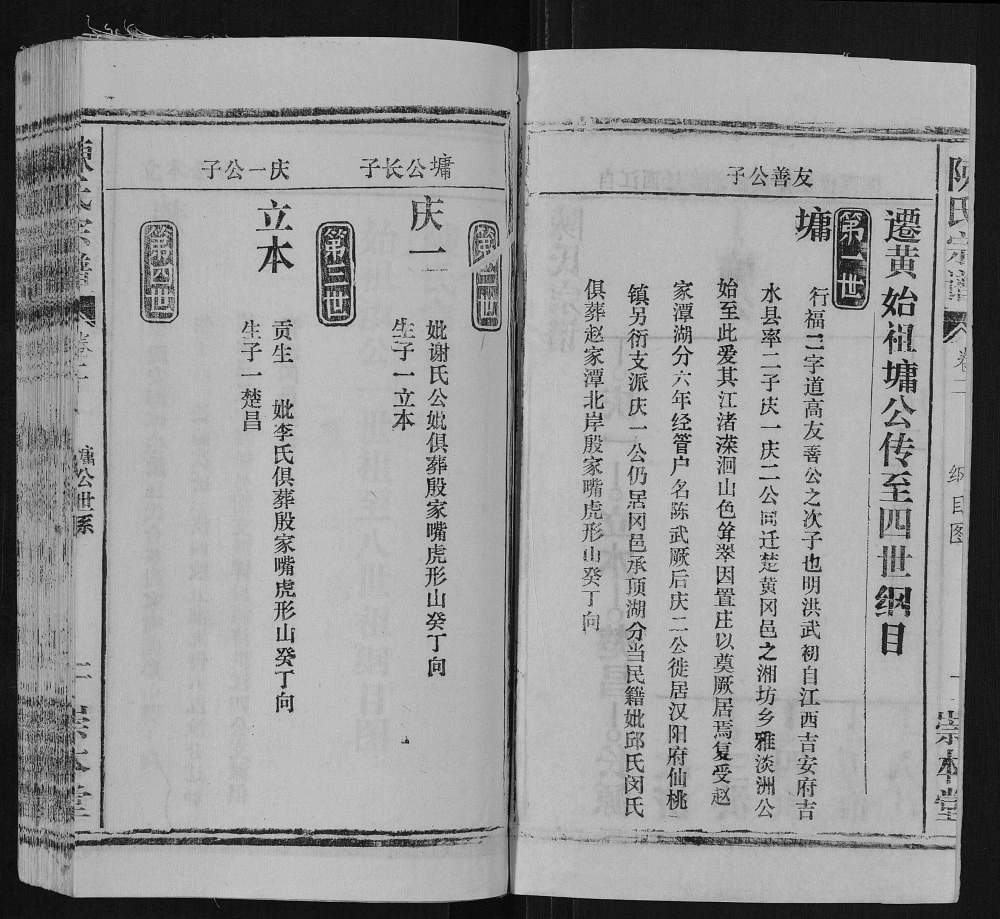 陈氏宗谱 卷二 纲目图 一 崇本堂
迁黄始祖墉公传至四世纲目
第一世
友善公子
墉
行福二字道高友善公之次子也明洪武初自江西吉安府吉
水县率二子庆一庆二公同迁楚黄冈邑之湘坊乡雅淡洲公
始至此爱其江渚溁洄山色耸翠因置庄以奠厥居焉复受赵
家潭湖分六年经管户名陈武厥后庆二公徙居汉阳府仙桃
镇另衍支派庆一公仍居冈邑承顶湖分当民籍妣邱氏闵氏
俱葬赵家潭北岸殷家嘴虎形山癸丁向
第二世
墉公长子
庆一
妣谢氏公妣俱葬殷家嘴虎形山癸丁向
生子一立本
第三世
庆一公子
立本
贡生 妣李氏俱葬殷家嘴虎形山癸丁向
生子一楚昌
第四世
墉公世系
崇本堂